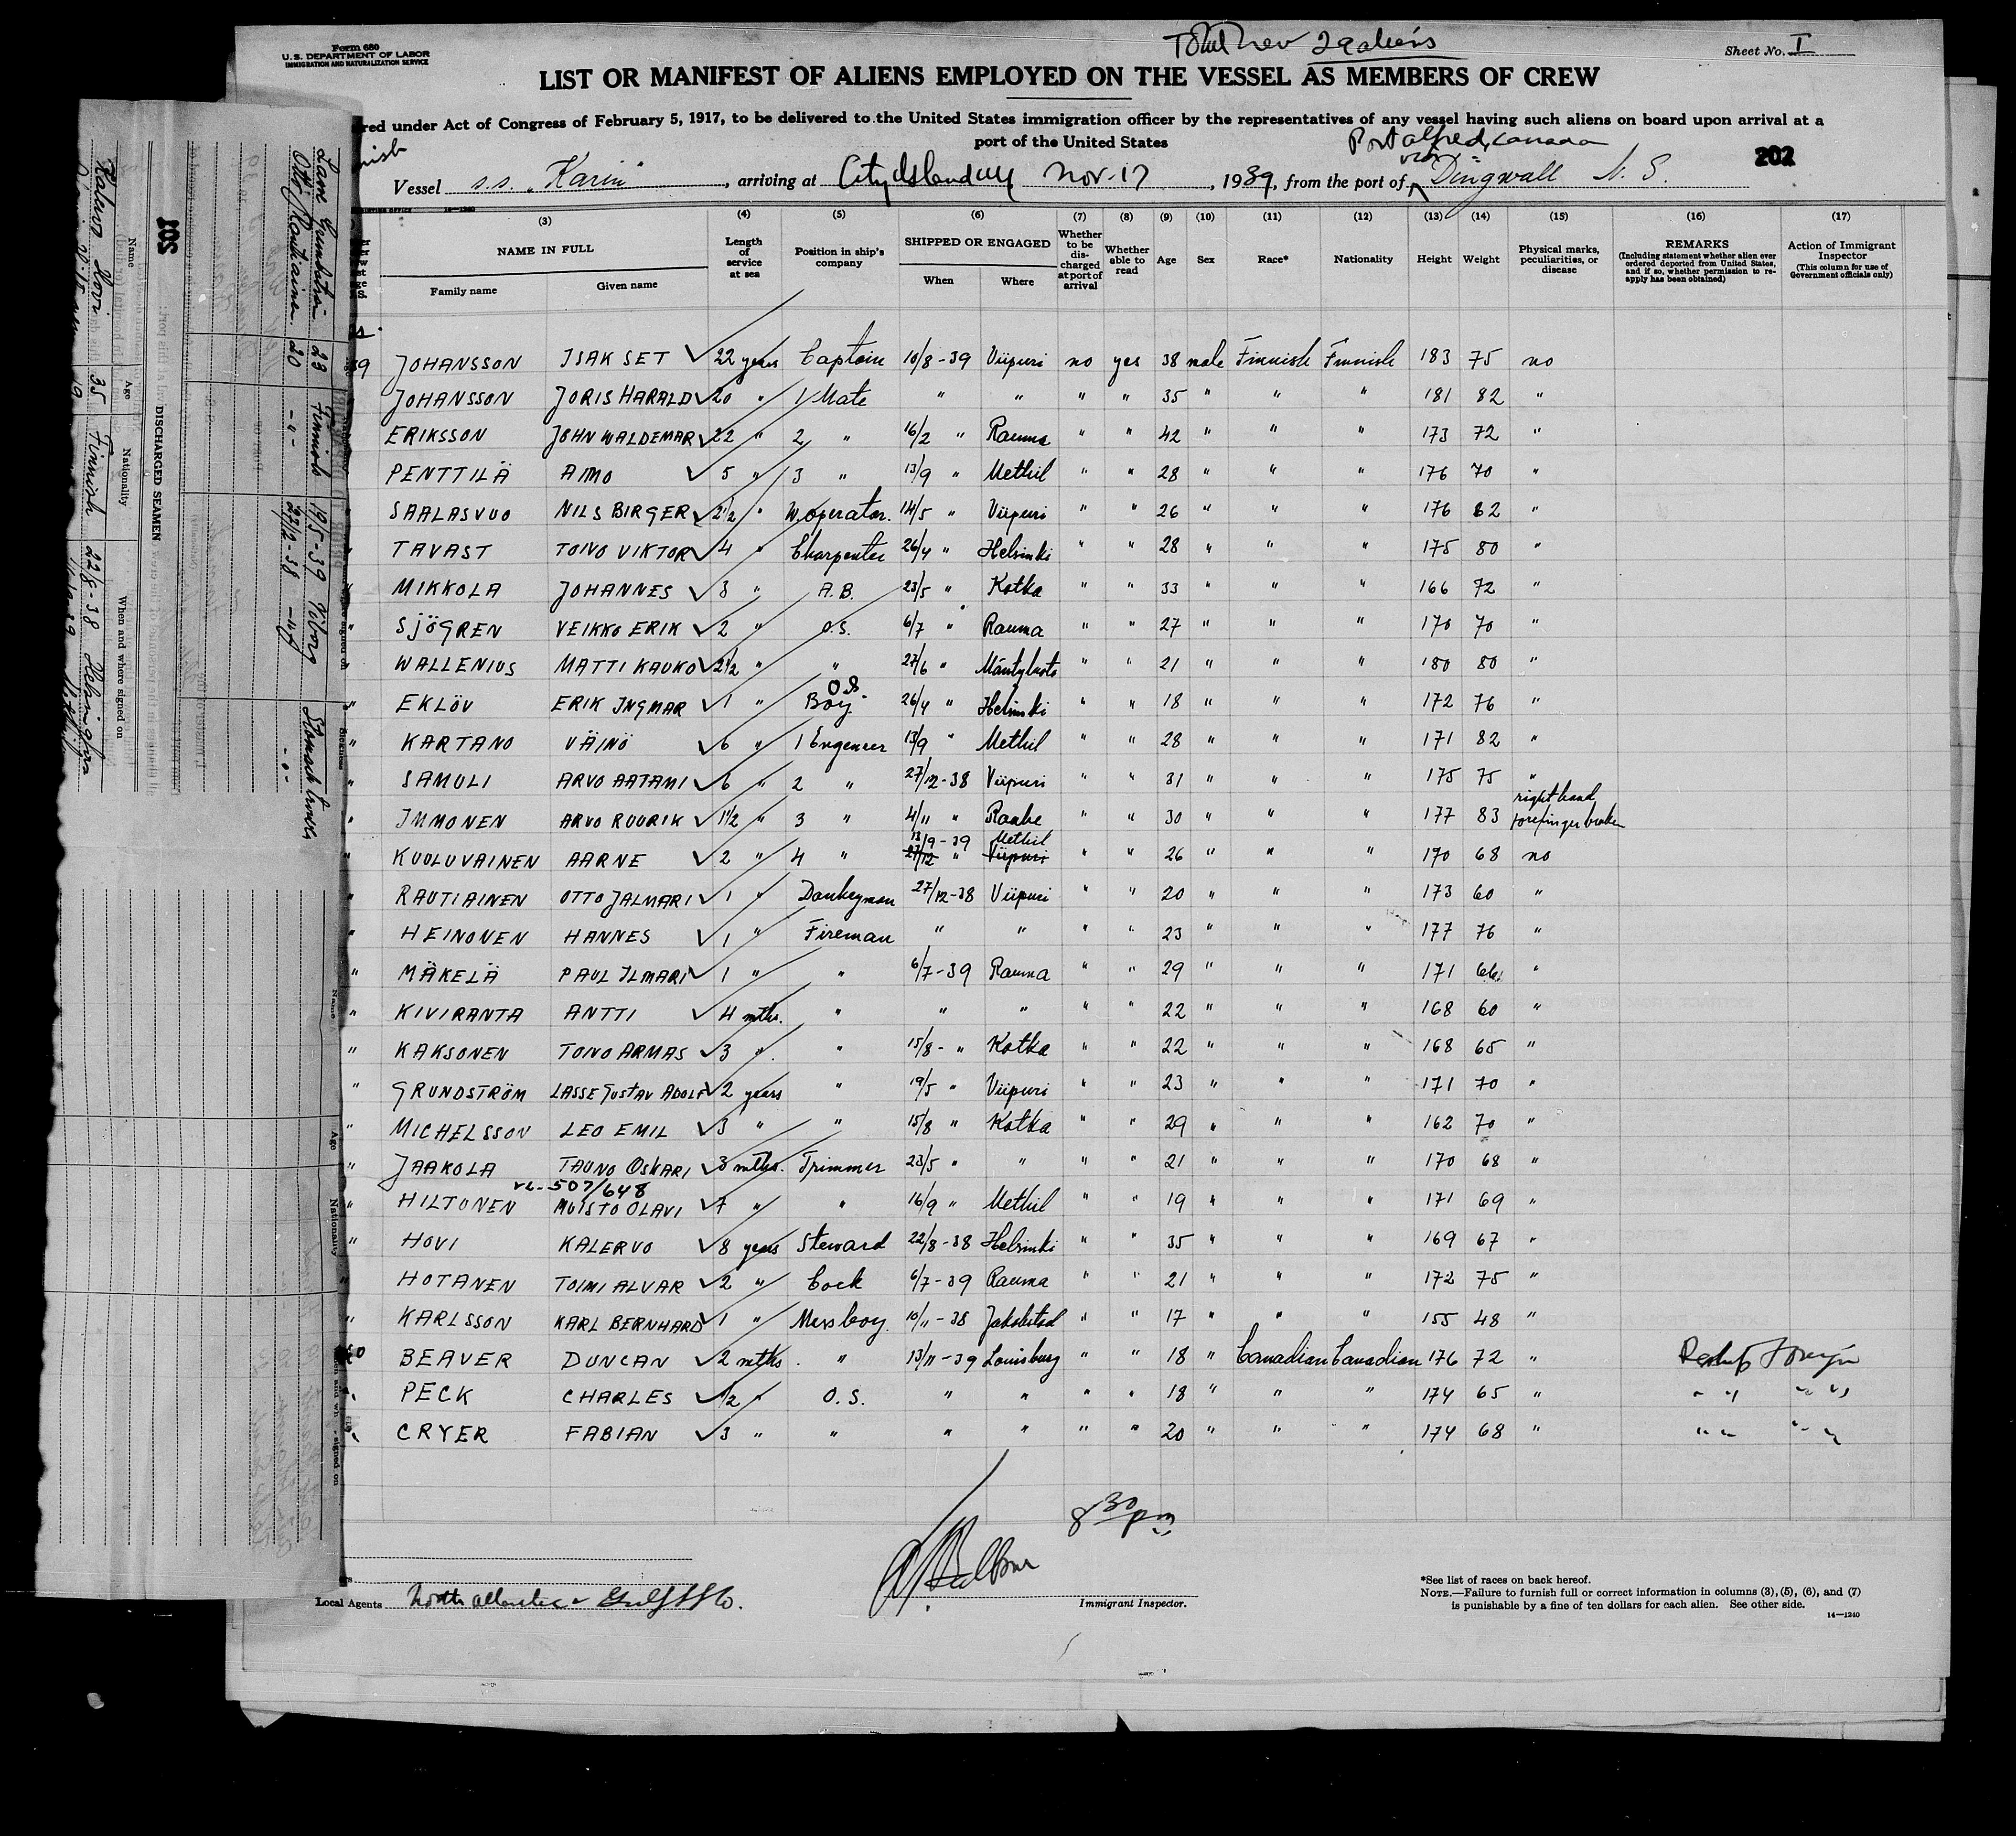 Total crew 29 aliens
Form 680
U.S. DEPARTMENT OF LABOR
IMMIGRATION AND NATURALIZATION SERVICE
Sheet No. I
LIST OR MANIFEST OF ALIENS EMPLOYED ON THE VESSEL AS MEMBERS OF CREW
red under Act of Congress of February 5, 1917, to be delivered to the United States immigration officer by the representatives of any vessel having such aliens on board upon arrival at a
port of the United States
Port Alfred, Canada
via
202
Vessel s.s. "Karin", arriving at City Island NY Nov. 17, 1939, from the port of Dingwall N. S.
(3) (4) (5) (6) (7) (8) (9) (10) (11) (12) (13) (14) (15) (16) (17)
NAME IN FULL
Family name Given name
Length of service at sea
Position in ship's company
SHIPPED OR ENGAGED
When Where
Whether to be discharged at port of arrival
Whether able to read
Age Sex Race* Nationality Height Weight
Physical marks, peculiarities, or disease
REMARKS
(Including statement whether alien ever ordered deported from United States, and if so, whether permission to reapply has been obtained)
Action of Immigrant Inspector
(This column for use of Government officials only)
JOHANSSON ISAK SET 22 years Captain 10/8-39 Viipuri no yes 38 male Finnish Finnish 183 75 no
JOHANSSON JORIS HARALD 20 " 1 Mate " " " " 35 " " " 181 82 "
ERIKSSON JOHN WALDEMAR 22 " 2 " 16/2 " Rauma " " 42 " " " 173 72 "
PENTTILÄ AIMO 5 " 3 " 13/9 " Methil " " 28 " " " 176 70 "
SAALASVUO NILS BIRGER 2 1/2 " W. operator. 14/5 " Viipuri " " 26 " " " 176 82 "
TAVAST TOIVO VIKTOR 4 " Charpenter 26/4 " Helsinki " " 28 " " " 175 80 "
MIKKOLA JOHANNES 8 " A.B. 23/5 " Kotka " " 33 " " " 166 72 "
SJÖGREN VEIKKO ERIK 2 " O.S. 6/7 " Rauma " " 27 " " " 170 70 "
WALLENIUS MATTI KAUKO 2 1/2 " " 27/6 " Mäntyluoto " " 21 " " " 180 80 "
O.S.
EKLÖV ERIK INGMAR 1 " Boy 26/4 " Helsinki " " 18 " " " 172 76 "
KARTANO VÄINÖ 6 " 1 Engeneer 13/9 " Methil " " 28 " " " 171 82 "
SAMULI ARVO AATAMI 6 " 2 " 27/12-38 Viipuri " " 31 " " " 175 75 "
right hand
IMMONEN ARVO RUURIK 1 1/2 " 3 " 4/11 " Raahe " " 30 " " " 177 83 forefinger broken
13/9-39 Methil
KUOLUVAINEN AARNE 2 " 4 " 27/12 " Viipuri " " 26 " " " 170 68 no
RAUTIAINEN OTTO JALMARI 1 " Donkeyman 27/12-38 Viipuri " " 20 " " " 173 60 "
HEINONEN HANNES 1 " Fireman " " " " 23 " " " 177 76 "
MÄKELÄ PAUL ILMARI 1 " " 6/7-39 Rauma " " 29 " " " 171 66 "
KIVIRANTA ANTTI 4 mths. " " " " " 22 " " " 168 60 "
KAKSONEN TOIVO ARMAS 3 " " 15/8- " Kotka " " 22 " " " 168 65 "
GRUNDSTRÖM LASSE GUSTAV ADOLF 2 years " 19/5 " Viipuri " " 23 " " " 171 70 "
MICHELSSON LEO EMIL 3 " " 15/8 " Kotka " " 29 " " " 162 70 "
JAAKOLA TAUNO OSKARI 3 mths. Trimmer 23/5 " " " " 21 " " " 170 68 "
507/648
HILTUNEN MUISTO OLAVI 7 " " 16/9 " Methil " " 19 " " " 171 69 "
HOVI KALERVO 8 years Steward 22/8-38 Helsinki " " 35 " " " 169 67 "
HOTANEN TOIMI ALVAR 2 " Cock 6/7-39 Rauma " " 21 " " " 172 75 "
KARLSSON KARL BERNHARD 1 " Messboy 10/11-38 Jakobstad " " 17 " " " 155 48 "
BEAVER DUNCAN 2 mths. " 13/11-39 Louisburg " " 18 " Canadian Canadian 176 72 " Reship Foreign
PECK CHARLES 1/2 " O.S. " " " " 18 " " " 174 65 " " " " "
CRYER FABIAN 3 " " " " " " 20 " " " 174 68 " " " " "
8 30 pm
Immigrant Inspector.
Local Agents North Atlantic & Gulf SS Co.
*See list of races on back hereof.
NOTE.—Failure to furnish full or correct information in columns (3), (5), (6), and (7)
is punishable by a fine of ten dollars for each alien. See other side.
14—1240
201
DISCHARGED SEAMEN
Name Age Nationality When and where signed on
Kalervo Hovi 35 Finnish 22/8-38 Helsingfors
Otto Rautiainen 20 -"- 27/12-38 -"-
23 Finnish 19/5-39 Viborg Stomach